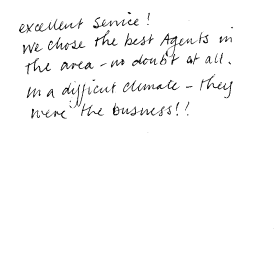 excellent service!
We chose the best Agents in
the area - no doubt at all.
In a difficult climate - they
were the business!!